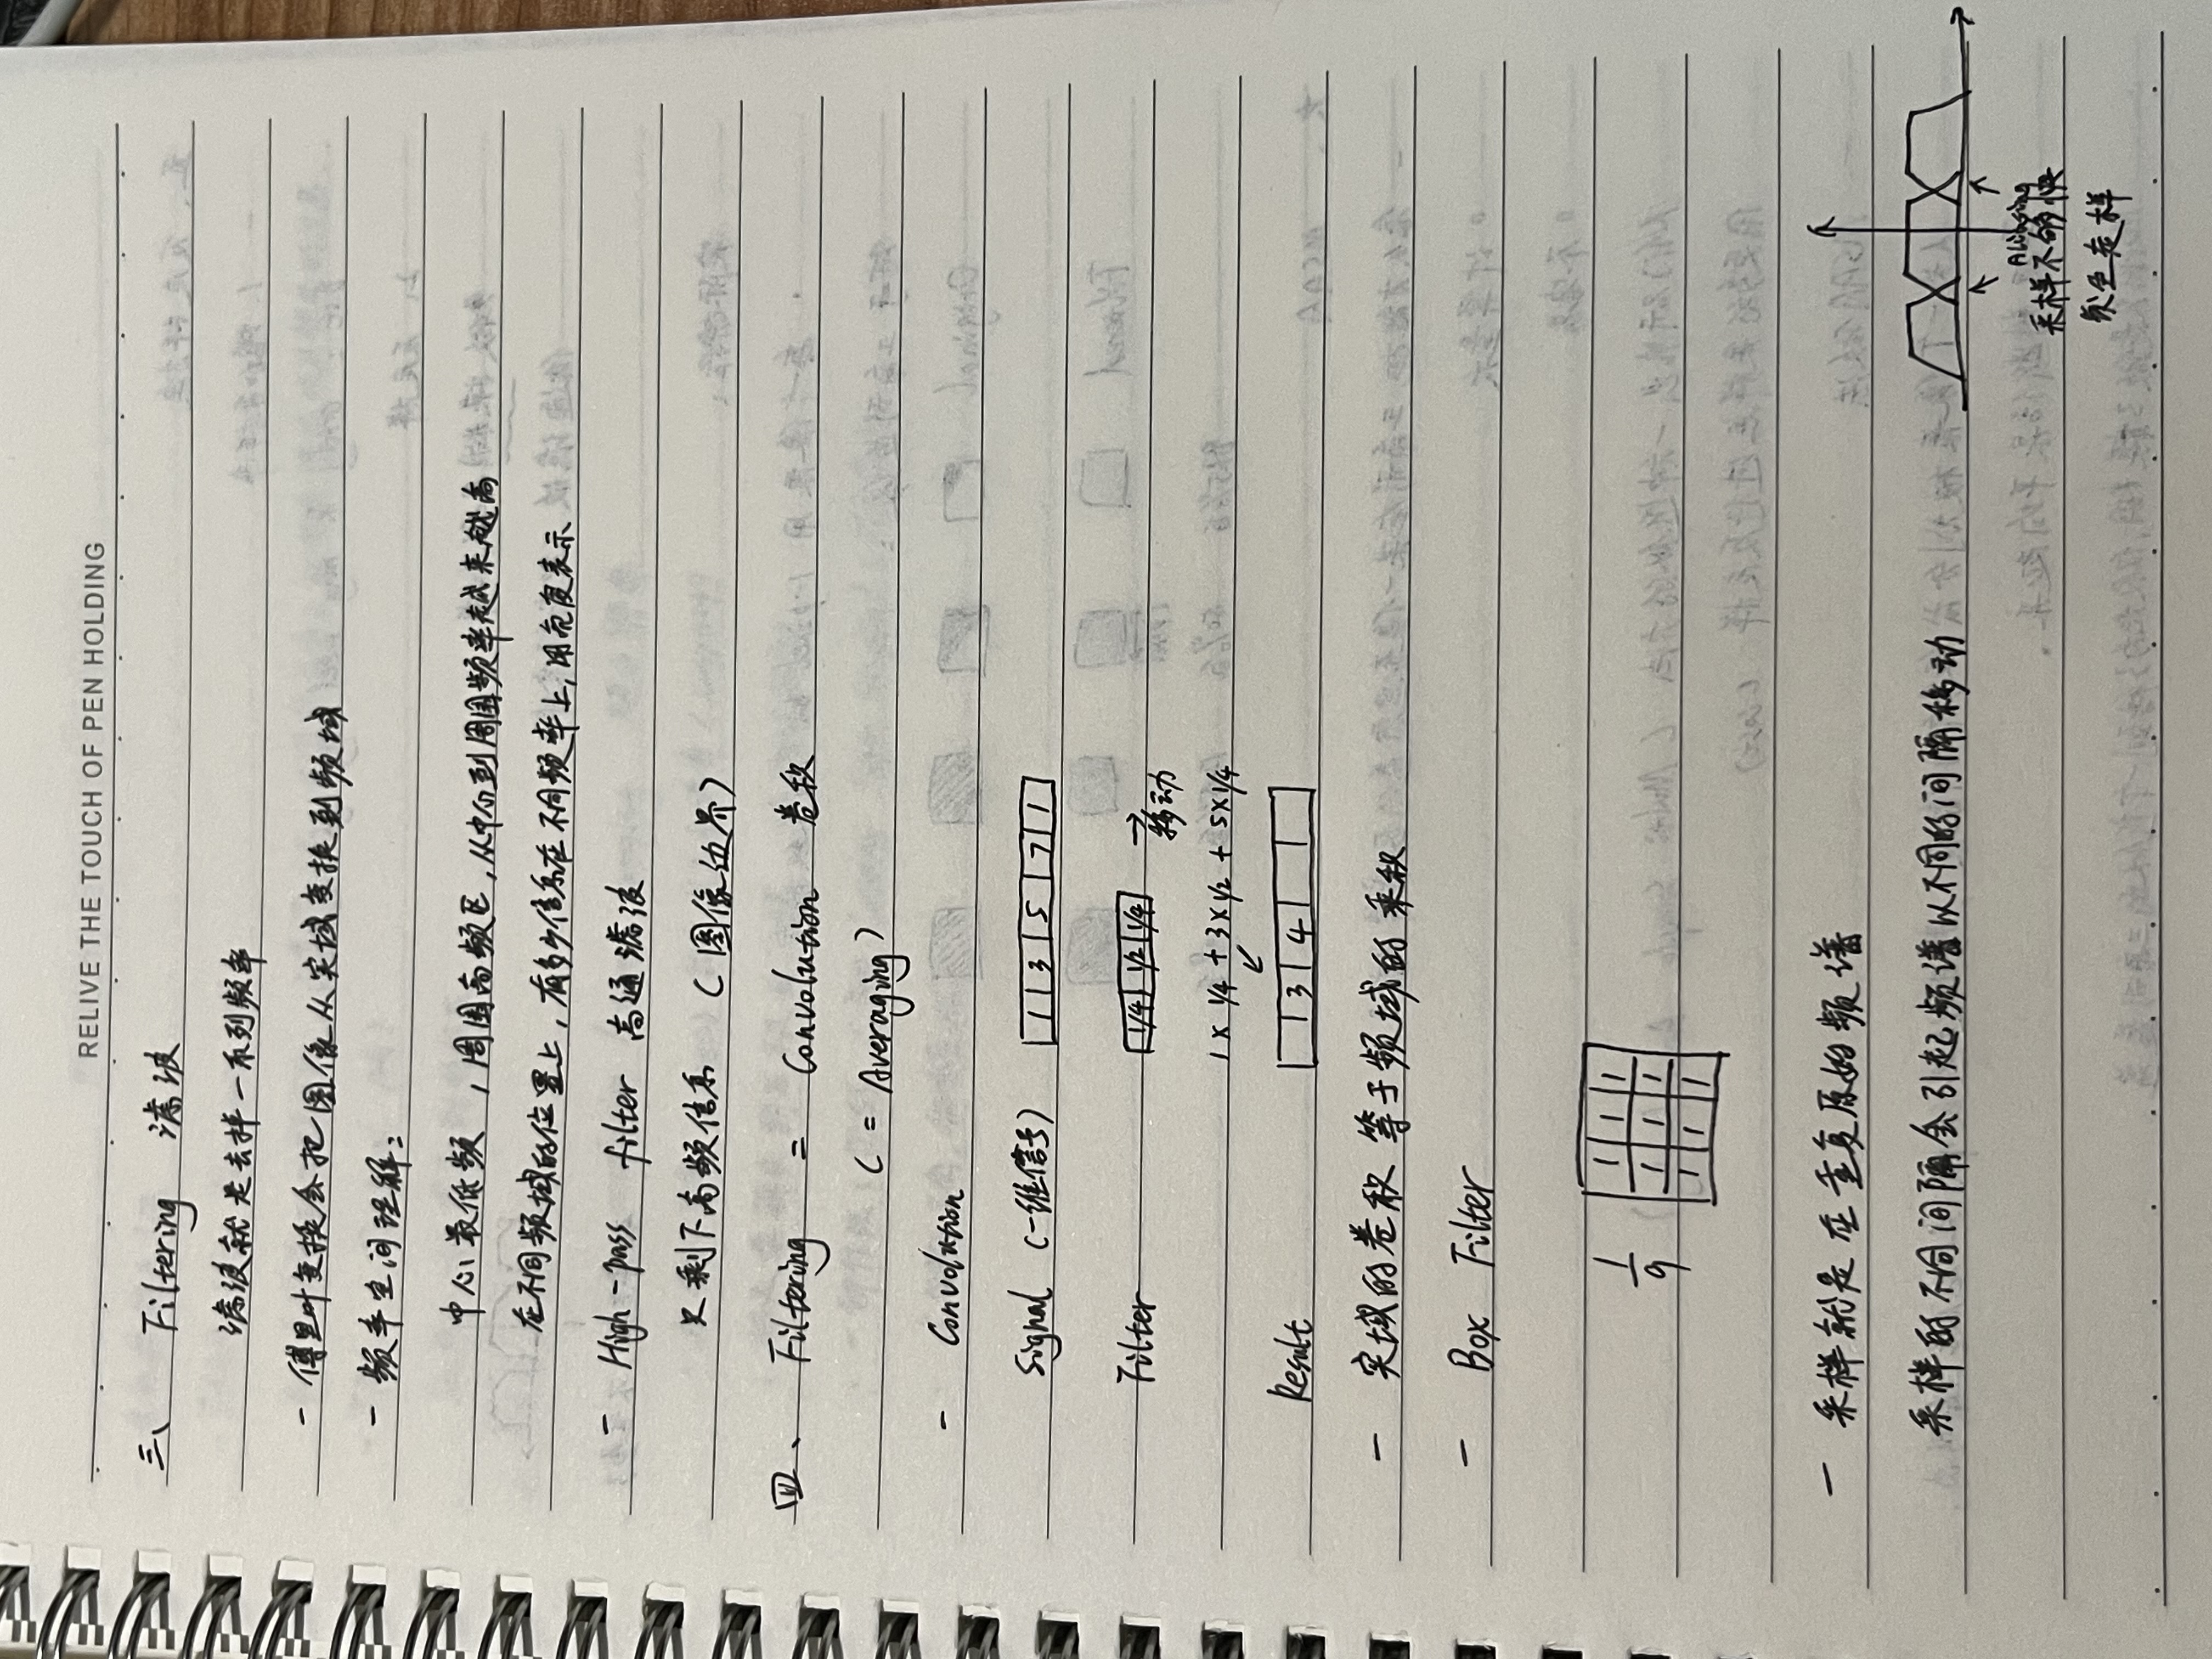 RELIVE THE TOUCH OF PEN HOLDING
三、Filtering 滤波
滤波就是去掉一系列频率
- 傅里叶变换会把图像从实域变换到频域
- 频率空间理解：
中心最低频，周围高频区，从中心到周围频率越来越高
在不同频域的位置上，有多少信息在不同频率上，用亮度表示
- High-pass filter 高通滤波
只剩下高频信息（图像边界）
四、Filtering = Convolution 卷积
(= Averaging)
- Convolution
Signal（一维信号） 1 3 5 7 1
Filter 1/4 1/2 1/4 → 移动
1 × 1/4 + 3 × 1/2 + 5 × 1/4
Result 3 4
- 实域的卷积等于频域的乘积
- Box Filter
1/9
1 1 1
1 1 1
1 1 1
- 采样就是在重复原始的频谱
采样的不同间隔会引起频谱以不同的间隔移动
Aliasing
采样不够快
频色走样